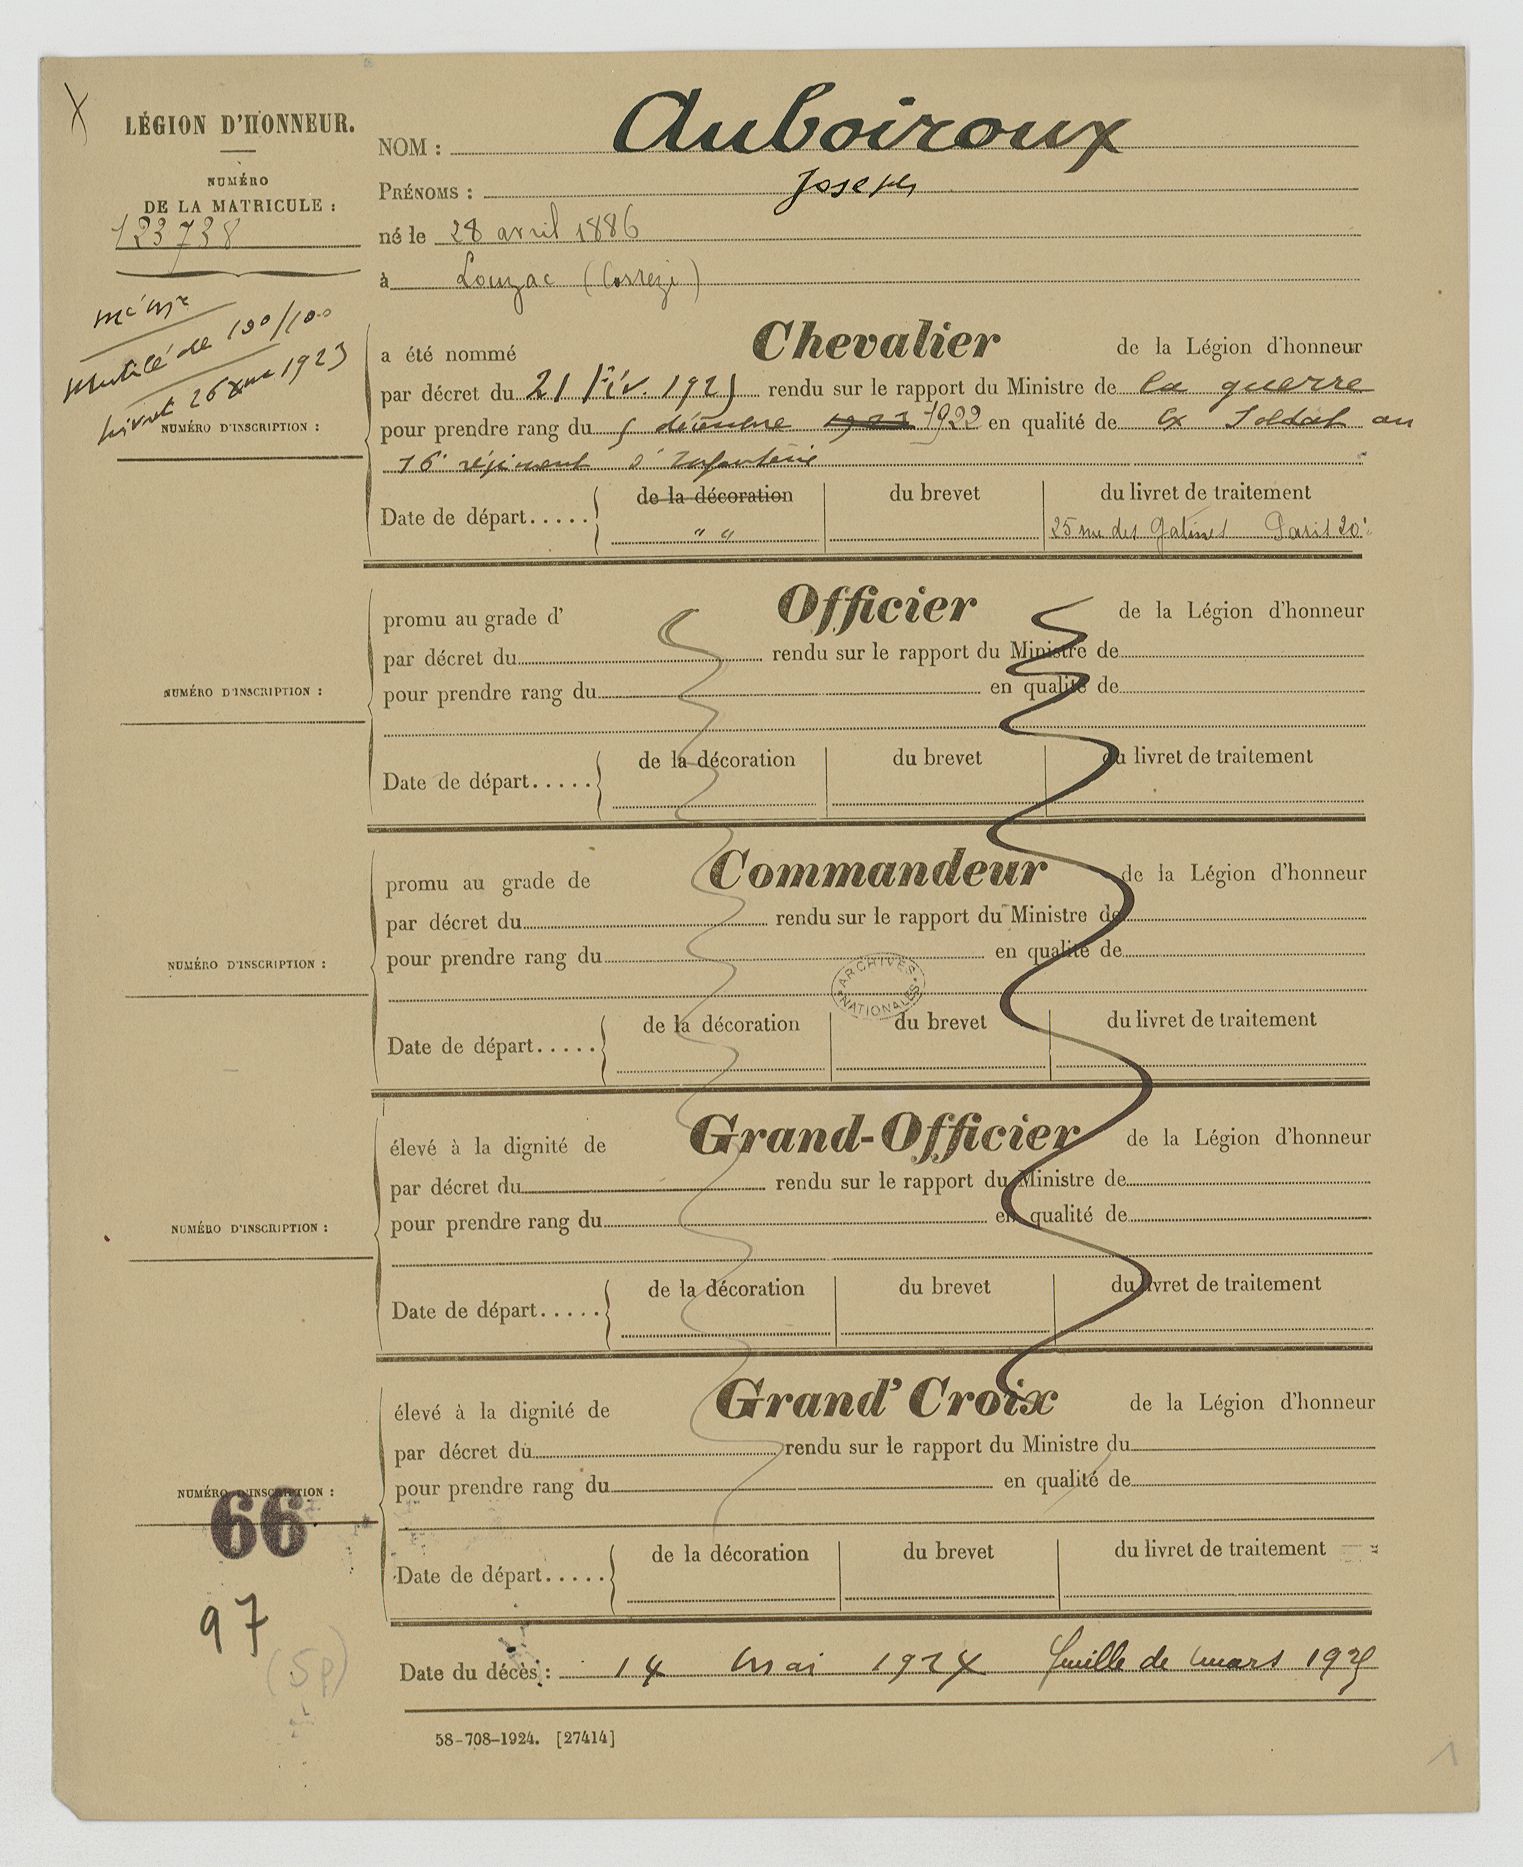 LÉGION D'HONNEUR.
NUMÉRO
DE LA MATRICULE :
123738
NOM : Auboiroux
PRÉNOMS : Joseph
né le 28 avril 1886
à Louzac (Corrèze)
Mutilé de 100/100
livret 26 1923
NUMÉRO D'INSCRIPTION :
a été nommé Chevalier de la Légion d'honneur
par décret du 21 Fév. 192 rendu sur le rapport du Ministre de la guerre
pour prendre rang du décembre 1922 en qualité de ex Soldat au
16e régiment d'Infanterie
Date de départ..... de la décoration du brevet du livret de traitement
" " 25 rue des Gatines Paris 20e
promu au grade d' Officier de la Légion d'honneur
par décret du rendu sur le rapport du Ministre de
NUMÉRO D'INSCRIPTION : pour prendre rang du en qualité de
Date de départ..... de la décoration du brevet du livret de traitement
promu au grade de Commandeur de la Légion d'honneur
par décret du rendu sur le rapport du Ministre de
NUMÉRO D'INSCRIPTION : pour prendre rang du en qualité de
ARCHIVES NATIONALES
Date de départ..... de la décoration du brevet du livret de traitement
élevé à la dignité de Grand-Officier de la Légion d'honneur
par décret du rendu sur le rapport du Ministre de
NUMÉRO D'INSCRIPTION : pour prendre rang du en qualité de
Date de départ..... de la décoration du brevet du livret de traitement
élevé à la dignité de Grand'Croix de la Légion d'honneur
par décret du rendu sur le rapport du Ministre du
NUMÉRO D'INSCRIPTION : pour prendre rang du en qualité de
66
Date de départ..... de la décoration du brevet du livret de traitement
97
(5p)
Date du décès : 14 mai 1924 feuille de mars 1925
58-708-1924. [27414]
1